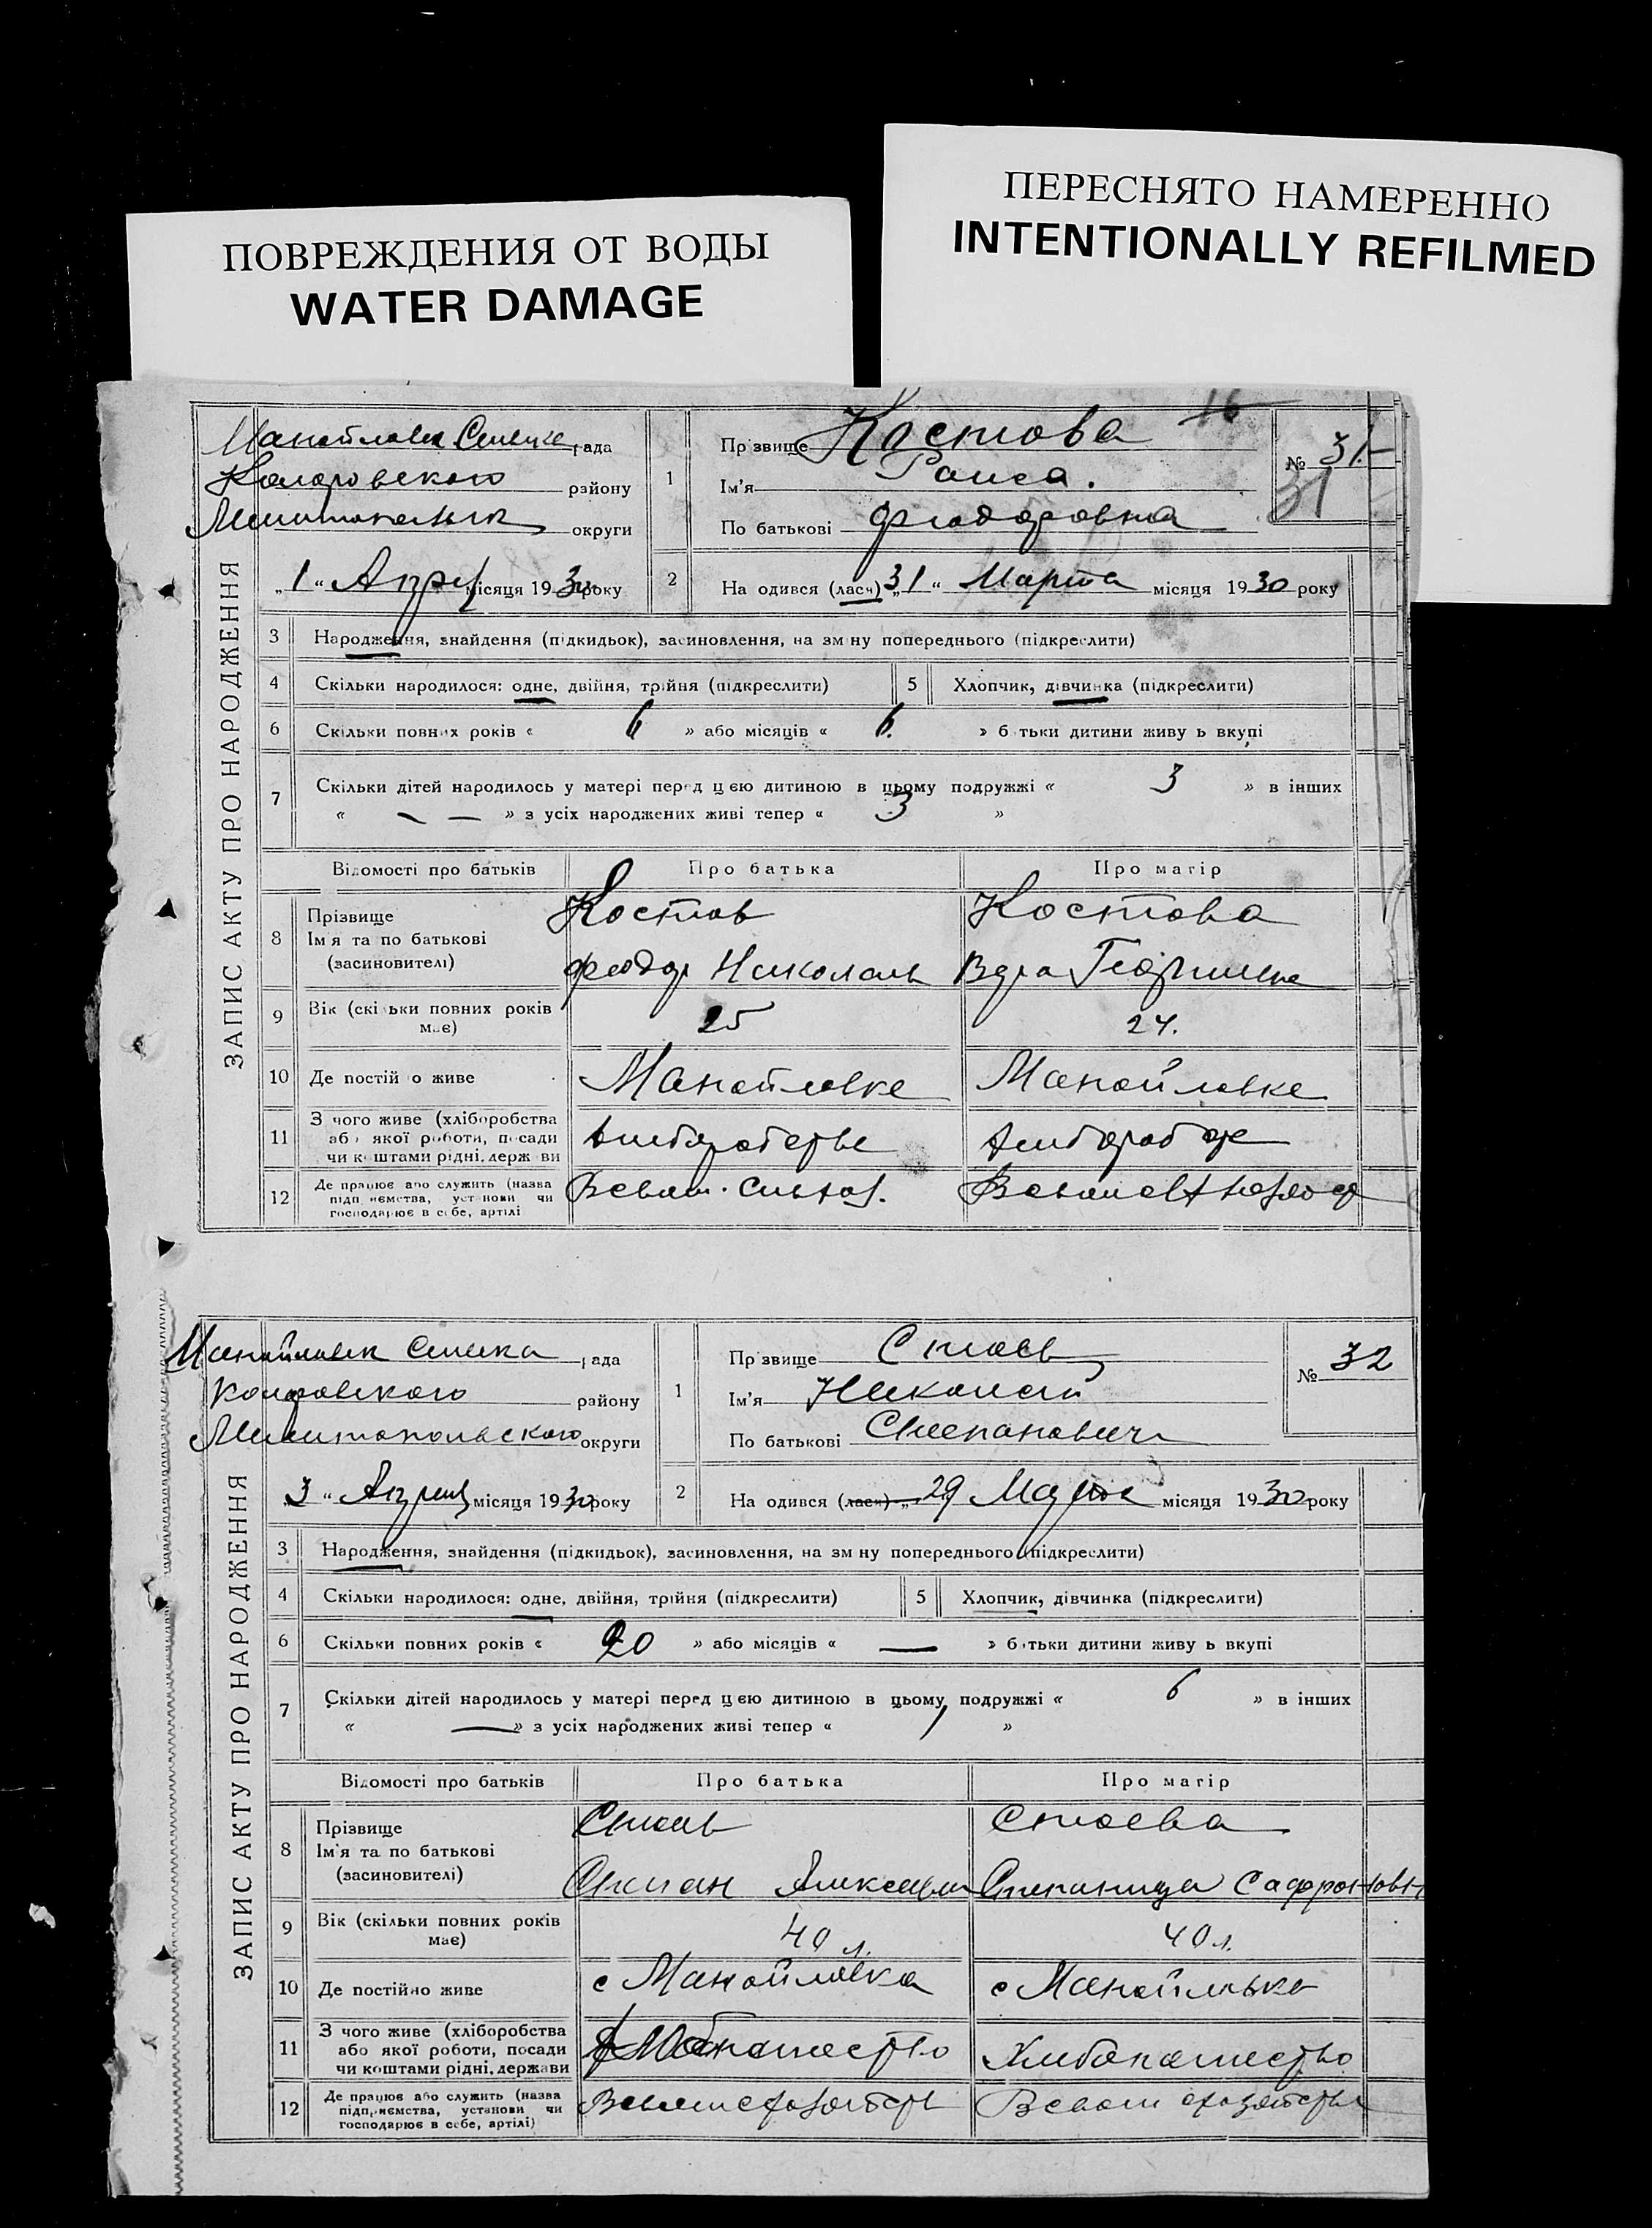 ПЕРЕСНЯТО НАМЕРЕННО
INTENTIONALLY REFILMED
ПОВРЕЖДЕНИЯ ОТ ВОДЫ
WATER DAMAGE
ЗАПИС АКТУ ПРО НАРОДЖЕННЯ
16
рада
Коларовского району
округи
„1“ місяця 1930 року
1 Прізвище Костова
Ім'я Раиса.
По батькові Федоровна
№ 31
31
2 На одився (лась) „31“ Марта місяця 1930 року
3 Народження, знайдення (підкидьок), засиновлення, на зміну попереднього (підкреслити)
4 Скільки народилося: одне, двійня, трійня (підкреслити)
5 Хлопчик, дівчинка (підкреслити)
6 Скільки повних років « 6 » або місяців « 6. » батьки дитини живуть вкупі
7 Скільки дітей народилось у матері перед цією дитиною в цьому подружжі « 3 » в інших
« — — » з усіх народжених живі тепер « 3 »
Відомості про батьків Про батька Про матір
8 Прізвище Костов Костова
Ім'я та по батькові
(засиновителі) Федор Вера
9 Вік (скільки повних років має) 25 24.
10 Де постійно живе Манойловке Манойловке
11 З чого живе (хліборобства
або якої роботи, посади
чи коштами рідні, держави
12 Де працює або служить (назва
підприємства, установи чи
господарює в себе, артілі
ЗАПИС АКТУ ПРО НАРОДЖЕННЯ
рада
району
Мелитопольского округи
„3“ Апреля місяця 1930 року
1 Прізвище Стоев
Ім'я Николай
По батькові Степанович
№ 32
2 На одився (лась) „29 Марта місяця 1930 року
3 Народження, знайдення (підкидьок), засиновлення, на зміну попереднього (підкреслити)
4 Скільки народилося: одне, двійня, трійня (підкреслити)
5 Хлопчик, дівчинка (підкреслити)
6 Скільки повних років « 20 » або місяців « — » батьки дитини живуть вкупі
7 Скільки дітей народилось у матері перед цією дитиною в цьому подружжі « 6 » в інших
« — » з усіх народжених живі тепер « »
Відомості про батьків Про батька Про матір
8 Прізвище Стоев Стоева
Ім'я та по батькові
(засиновителі) Степан
9 Вік (скільки повних років має) 40 л. 40 л.
10 Де постійно живе с Манойловка с Манойловка
11 З чого живе (хліборобства
або якої роботи, посади
чи коштами рідні, держави Хлебопашество
12 Де працює або служить (назва
підприємства, установи чи
господарює в себе, артілі)